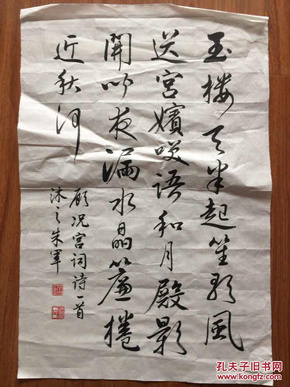 玉樓天半起笙歌風
送宮嬪咲語和月殿影
開聞夜漏水晶簾捲
近秋河
顧況宮詞詩一首
沐之朱軍
孔夫子旧书网